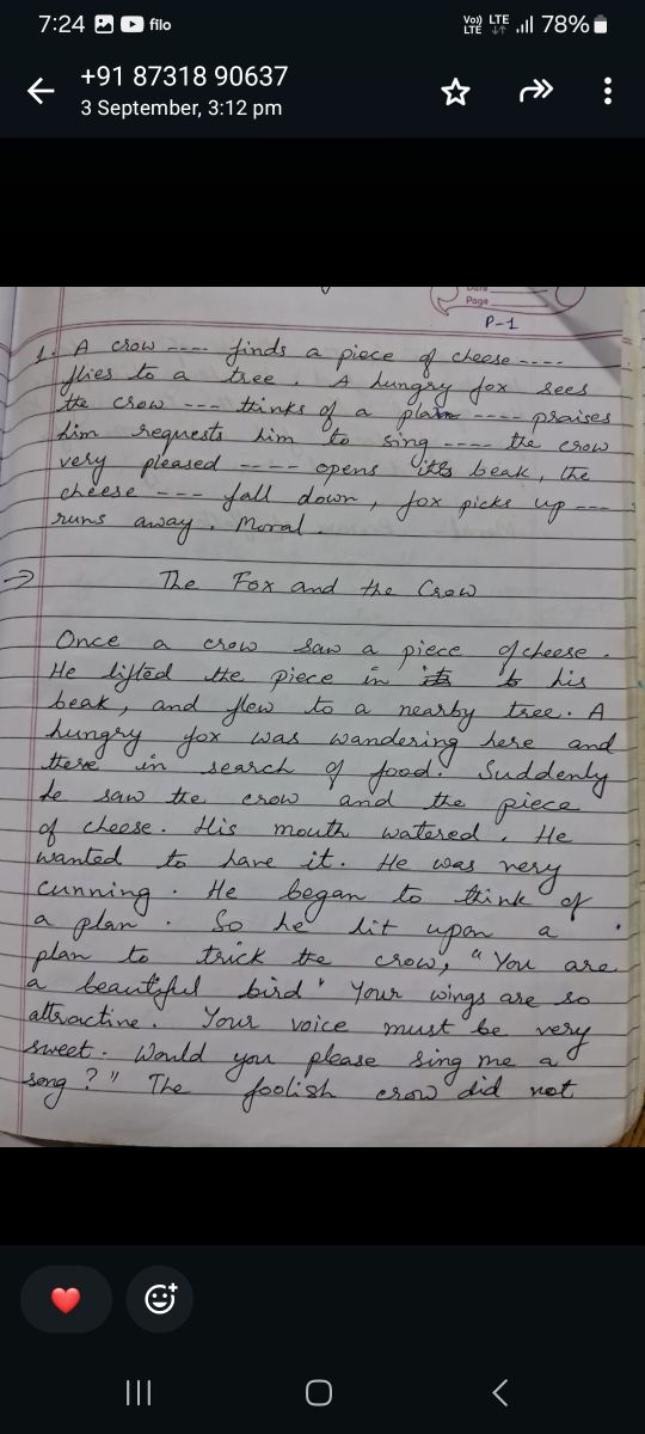 7:24 filo Vo)) LTE LTE 78%
+91 87318 90637
3 September, 3:12 pm
Date
Page
P-1
1. A crow ---- finds a piece of cheese ----
flies to a tree. A hungry fox sees
the crow --- thinks of a plan ---- praises
him requests him to sing ---- the crow
very pleased ---- opens its beak, the
cheese --- fall down, fox picks up ---
runs away. Moral.
→ The Fox and the Crow
Once a crow saw a piece of cheese.
He lifted the piece in his
beak, and flew to a nearby tree. A
hungry fox was wandering here and
there in search of food. Suddenly
he saw the crow and the piece
of cheese. His mouth watered. He
wanted to have it. He was very
cunning. He began to think of
a plan. So he hit upon a
plan to trick the crow, "You are
a beautiful bird" Your wings are so
attractine. Your voice must be very
sweet. Would you please sing me a
song?" The foolish crow did not